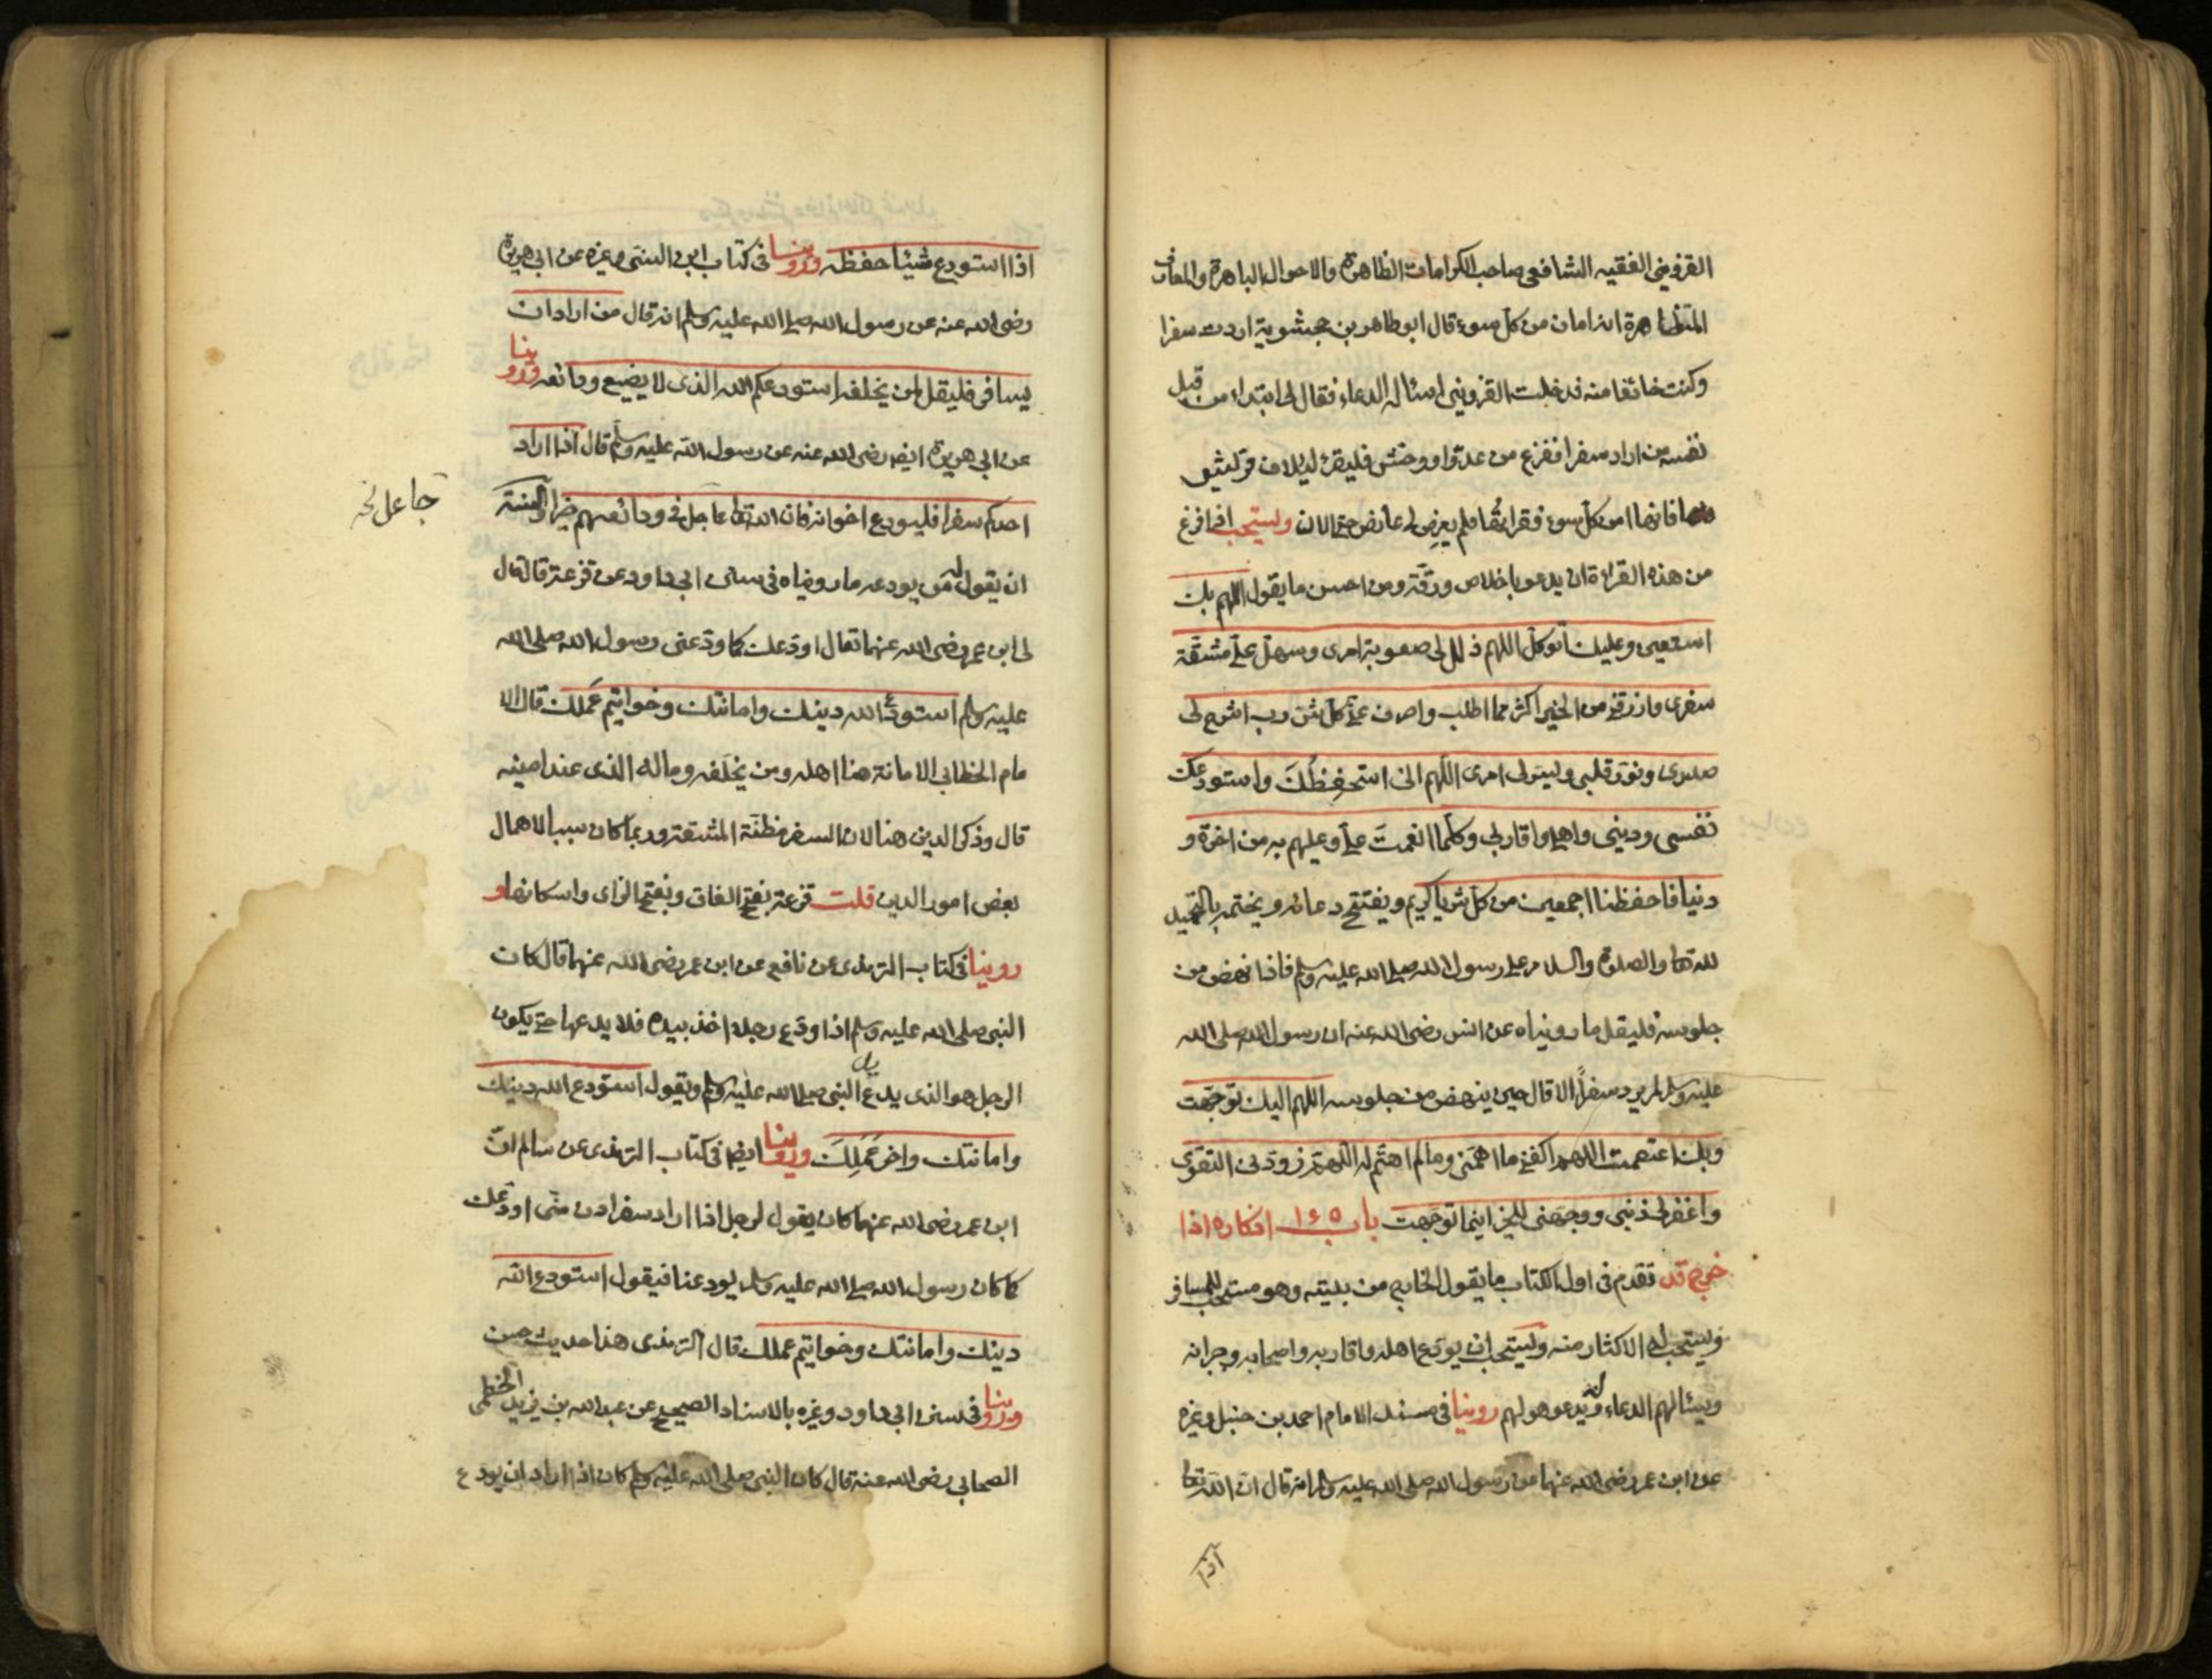 القزويني الفقيه الشافعي صاحب الكرامات الظاهرة والاحوال الباهرة والمعارف
المتظاهرة انه امان من كل سوء قال ابو طاهر بن جحشويه اردت سفرا
وكنت خائفا منه فدخلت القزويني اسئاله الدعاء فقال لي ابتداء من قبل
نفسه من اراد سفرا ففزع من عدو او وحش فليقرء لايلاف قريش
فانها امن كل سوء فقرأتها فلم يعرض لي عارض حتى الان ويستحب اذا فرغ
من هذه القراءة ان يدعو باخلاص ورقة ومن احسن ما يقول اللهم بك
استعين وعليك اتوكل اللهم ذلل لي صعوبة امري وسهل علي مشقة
سفري وارزقني من الخير اكثر مما اطلب واصرف عني كل شر رب اشرح لي
صدري ونور قلبي ويسر لي امري اللهم اني استحفظك واستودعك
نفسي وديني واهلي واقاربي وكلما انعمت علي وعليهم به من اخرة و
دنيا فاحفظنا اجمعين من كل شر يا كريم ويفتتح دعائه ويختمه بالتحميد
لله تعالى والصلوة والسلام على رسول الله صلى الله عليه وسلم فاذا نهض من
جلوسه فليقل ما رويناه عن انس رضي الله عنه ان رسول الله صلى الله
عليه وسلم لم يرد سفرا الا قال حين ينهض من جلوسه اللهم اليك توجهت
وبك اعتصمت اللهم اكفني ما اهمني وما لم اهتم له اللهم زودني التقوى
واغفر لي ذنبي ووجهني للخير اينما توجهت باب ١٤٥ اذكاره اذا
خرج قد تقدم في اول الكتاب ما يقول الخارج من بيته وهو مستحب للمسافر
ويستحب له الاكثار منه ويستحب ان يودع اهله واقاربه واصحابه وجيرانه
ويسئالهم الدعاء له ويدعو هو لهم روينا في مسند الامام احمد بن حنبل وغيره
عن ابن عمر رضي الله عنهما عن رسول الله صلى الله عليه وسلم انه قال ان الله تعالى
اذا
اذا استودع شيئا حفظه وروينا في كتاب ابن السني وغيره عن ابي هريرة
رضي الله عنه عن رسول الله صلى الله عليه وسلم انه قال من اراد ان
يسافر فليقل لمن يخلفه استودعكم الله الذي لا يضيع ودائعه وروينا
عن ابي هريرة ايضا رضي الله عنه عن رسول الله عليه وسلم قال اذا اراد
احدكم سفرا فليودع اخوانه فان الله تعالى عاجل في ودائعهم خيرا والسنة
جاعل نخه
ان يقول له من يودعه ما رويناه في سنن ابي داود عن قزعة قال قال
لي ابن عمر رضي الله عنهما تعال اودعك كما ودعني رسول الله صلى الله
عليه وسلم استودع الله دينك وامانتك وخواتيم عملك قال الا
مام الخطابي الامانة هنا اهله ومن يخلفه وماله الذي عند امينه
قال وذكر الدين هنا لان السفر مظنة المشقة وربما كان سببا لاهمال
بعض امور الدين قلت قزعة بفتح القاف وبفتح الزاى واسكانها و
روينا في كتاب الترمذي عن نافع عن ابن عمر رضي الله عنهما قال كان
النبي صلى الله عليه وسلم اذا ودع رجلا اخذ بيده فلا يدعها حتى يكون
الرجل هو الذي يدع يد النبي صلى الله عليه وسلم ويقول استودع الله دينك
وامانتك واخر عملك وروينا ايضا في كتاب الترمذي عن سالم ان
ابن عمر رضي الله عنهما كان يقول لرجل اذا اراد سفرا ادن مني اودعك
كما كان رسول الله صلى الله عليه وسلم يودعنا فيقول استودع الله
دينك وامانتك وخواتيم عملك قال الترمذي هذا حديث حسن
وروينا في سنن ابي داود وغيره بالاسناد الصحيح عن عبد الله بن يزيد الخطمي
الصحابي رضي الله عنه قال كان النبي صلى الله عليه وسلم كان اذا اراد ان يودع